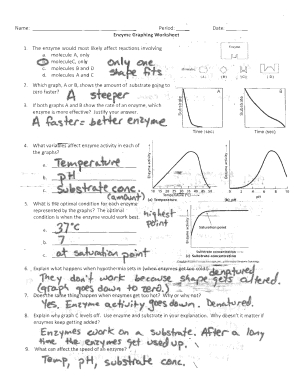 Name: Period Date
Enzyme Graphing Worksheet
1. The enzyme would most likely affect reactions involving
a. molecule A, only
b. molecule C, only
c. molecules B and D
d. molecules A and C
only one shape fits
Enzyme
(A) (B) (C) (D)
2. Which graph, A or B, shows the amount of substrate going to zero faster?
A steeper
3. If both graphs A and B show the rate of an enzyme, which enzyme is more effective? Justify your answer.
A faster = better enzyme
A
B
Substrate
Substrate
Time (sec)
Time (sec)
4. What variables affect enzyme activity in each of the graphs?
a. Temperature
b. pH
c. Substrate conc.
(amount)
Enzyme activity
Enzyme activity
(a) Temperature
(b) pH
5. What is the optimal condition for each enzyme represented by the graphs? The optimal condition is when the enzyme would work best.
highest point
a. 37°C
b. 7
c. at saturation point
Enzyme activity
Saturation point
Substrate concentration
(c) Substrate concentration
6. Explain what happens when hypothermia sets in (when enzymes get too cold).
They don't work because shape gets altered.
denatured
(graph goes down to zero.)
7. Does the same thing happen when enzymes get too hot? Why or why not?
Yes, Enzyme activity goes down. Denatured.
8. Explain why graph C levels off. Use enzyme and substrate in your explanation. Why doesn't it matter if enzymes keep getting added?
Enzymes work on a substrate. After a long
time the enzymes get used up.
9. What can affect the speed of an enzyme?
Temp, pH, substrate conc.